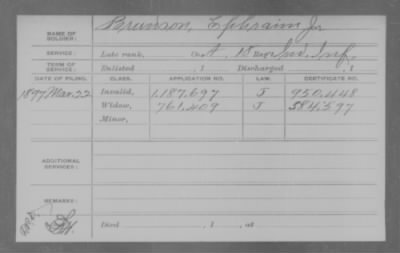 NAME OF SOLDIER: Brunson, Ephraim Jr
SERVICE: Late rank, Co. A, 1st Reg't Ind. Inf.
TERM OF SERVICE: Enlisted , 1 Discharged , 1
DATE OF FILING. CLASS. APPLICATION NO. LAW. CERTIFICATE NO.
1897 Mar. 22 Invalid, 1,187,697 J 950,448
Widow, 761,409 J 584,597
Minor,
ADDITIONAL SERVICES:
REMARKS:
Died , 1 , at